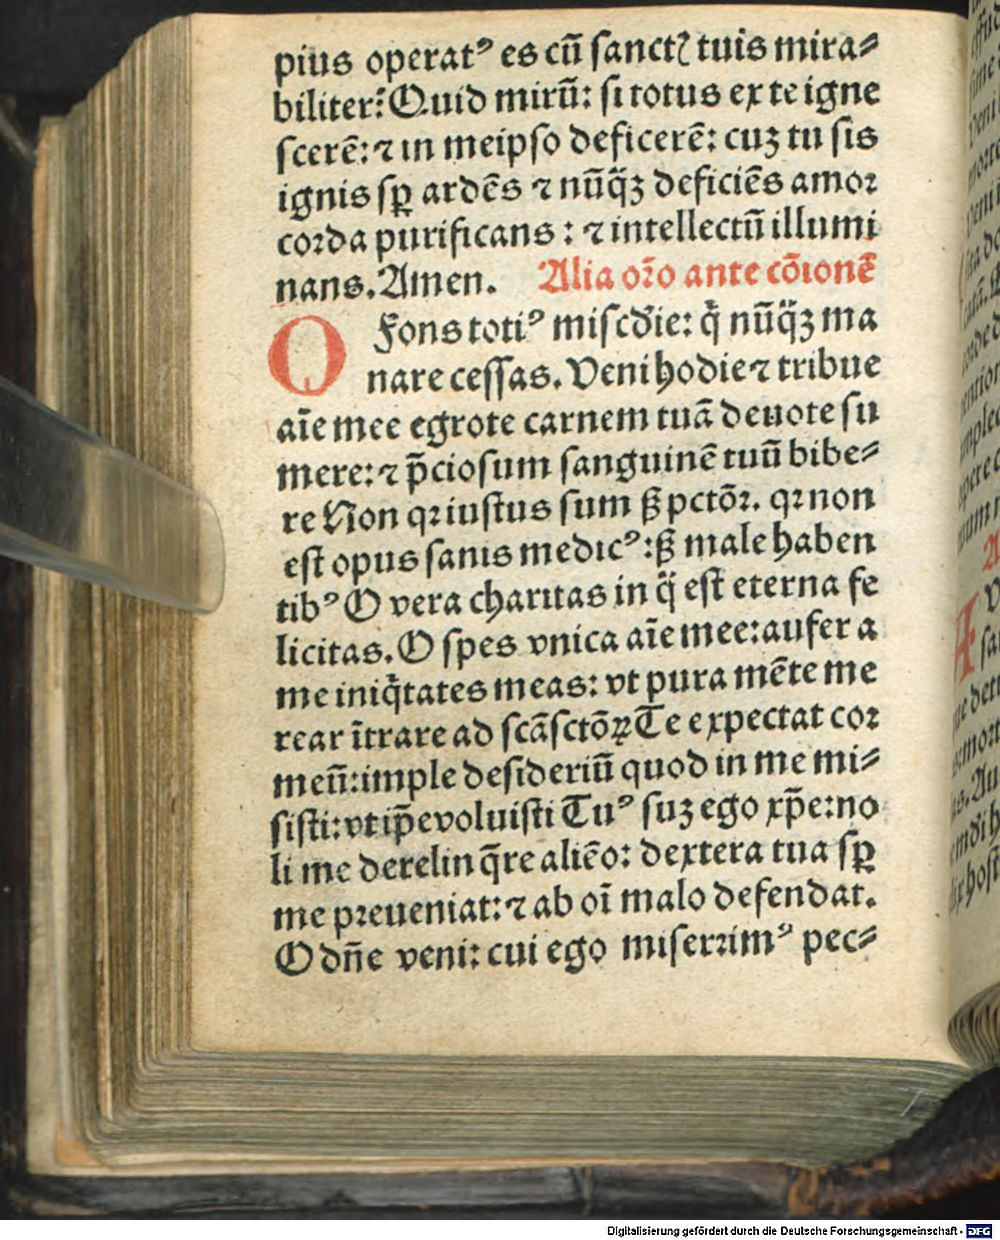 pius operatꝰ es cū sanctꝭ tuis mira⸗
biliter? Quid mirū: si totus ex te igne
scerē: ⁊ in meipso deficerē: cuꝫ tu sis
ignis sꝑ ardēs ⁊ nūq̄ꝫ deficiēs amoꝛ
coꝛda purificans: ⁊ intellectū illumi
nans. Amen. Alia oꝛ̄o ante cōionē
O Fons totiꝰ misc̄die: q̇ nūq̄ꝫ ma
nare cessas. Veni hodie ⁊ tribue
aīe mee egrote carnem tuā deuote su
mere: ⁊ p̄ciosum sanguinē tuū bibe⸗
re Non qꝛ iustus sum ꞩꝫ pctōꝛ. qꝛ non
est opus sanis medicꝰ: ꞩꝫ male haben
tibꝰ O vera charitas in q̄ est eterna fe
licitas. O spes vnica aīe mee: aufer a
me iniq̇tates meas: vt pura mēte me
rear ītrare ad scāsctōꝝ Te expectat coꝛ
meū: imple desideriū quod in me mi⸗
sisti: vt ip̄e voluisti Tuꝰ suꝫ ego xp̄e: no
li me derelinq̄re aliēo: dextera tua sꝑ
me pꝛeueniat: ⁊ ab oī malo defendat.
O dn̄e veni: cui ego miserrimꝰ pec⸗
Digitalisierung gefördert durch die Deutsche Forschungsgemeinschaft - DFG